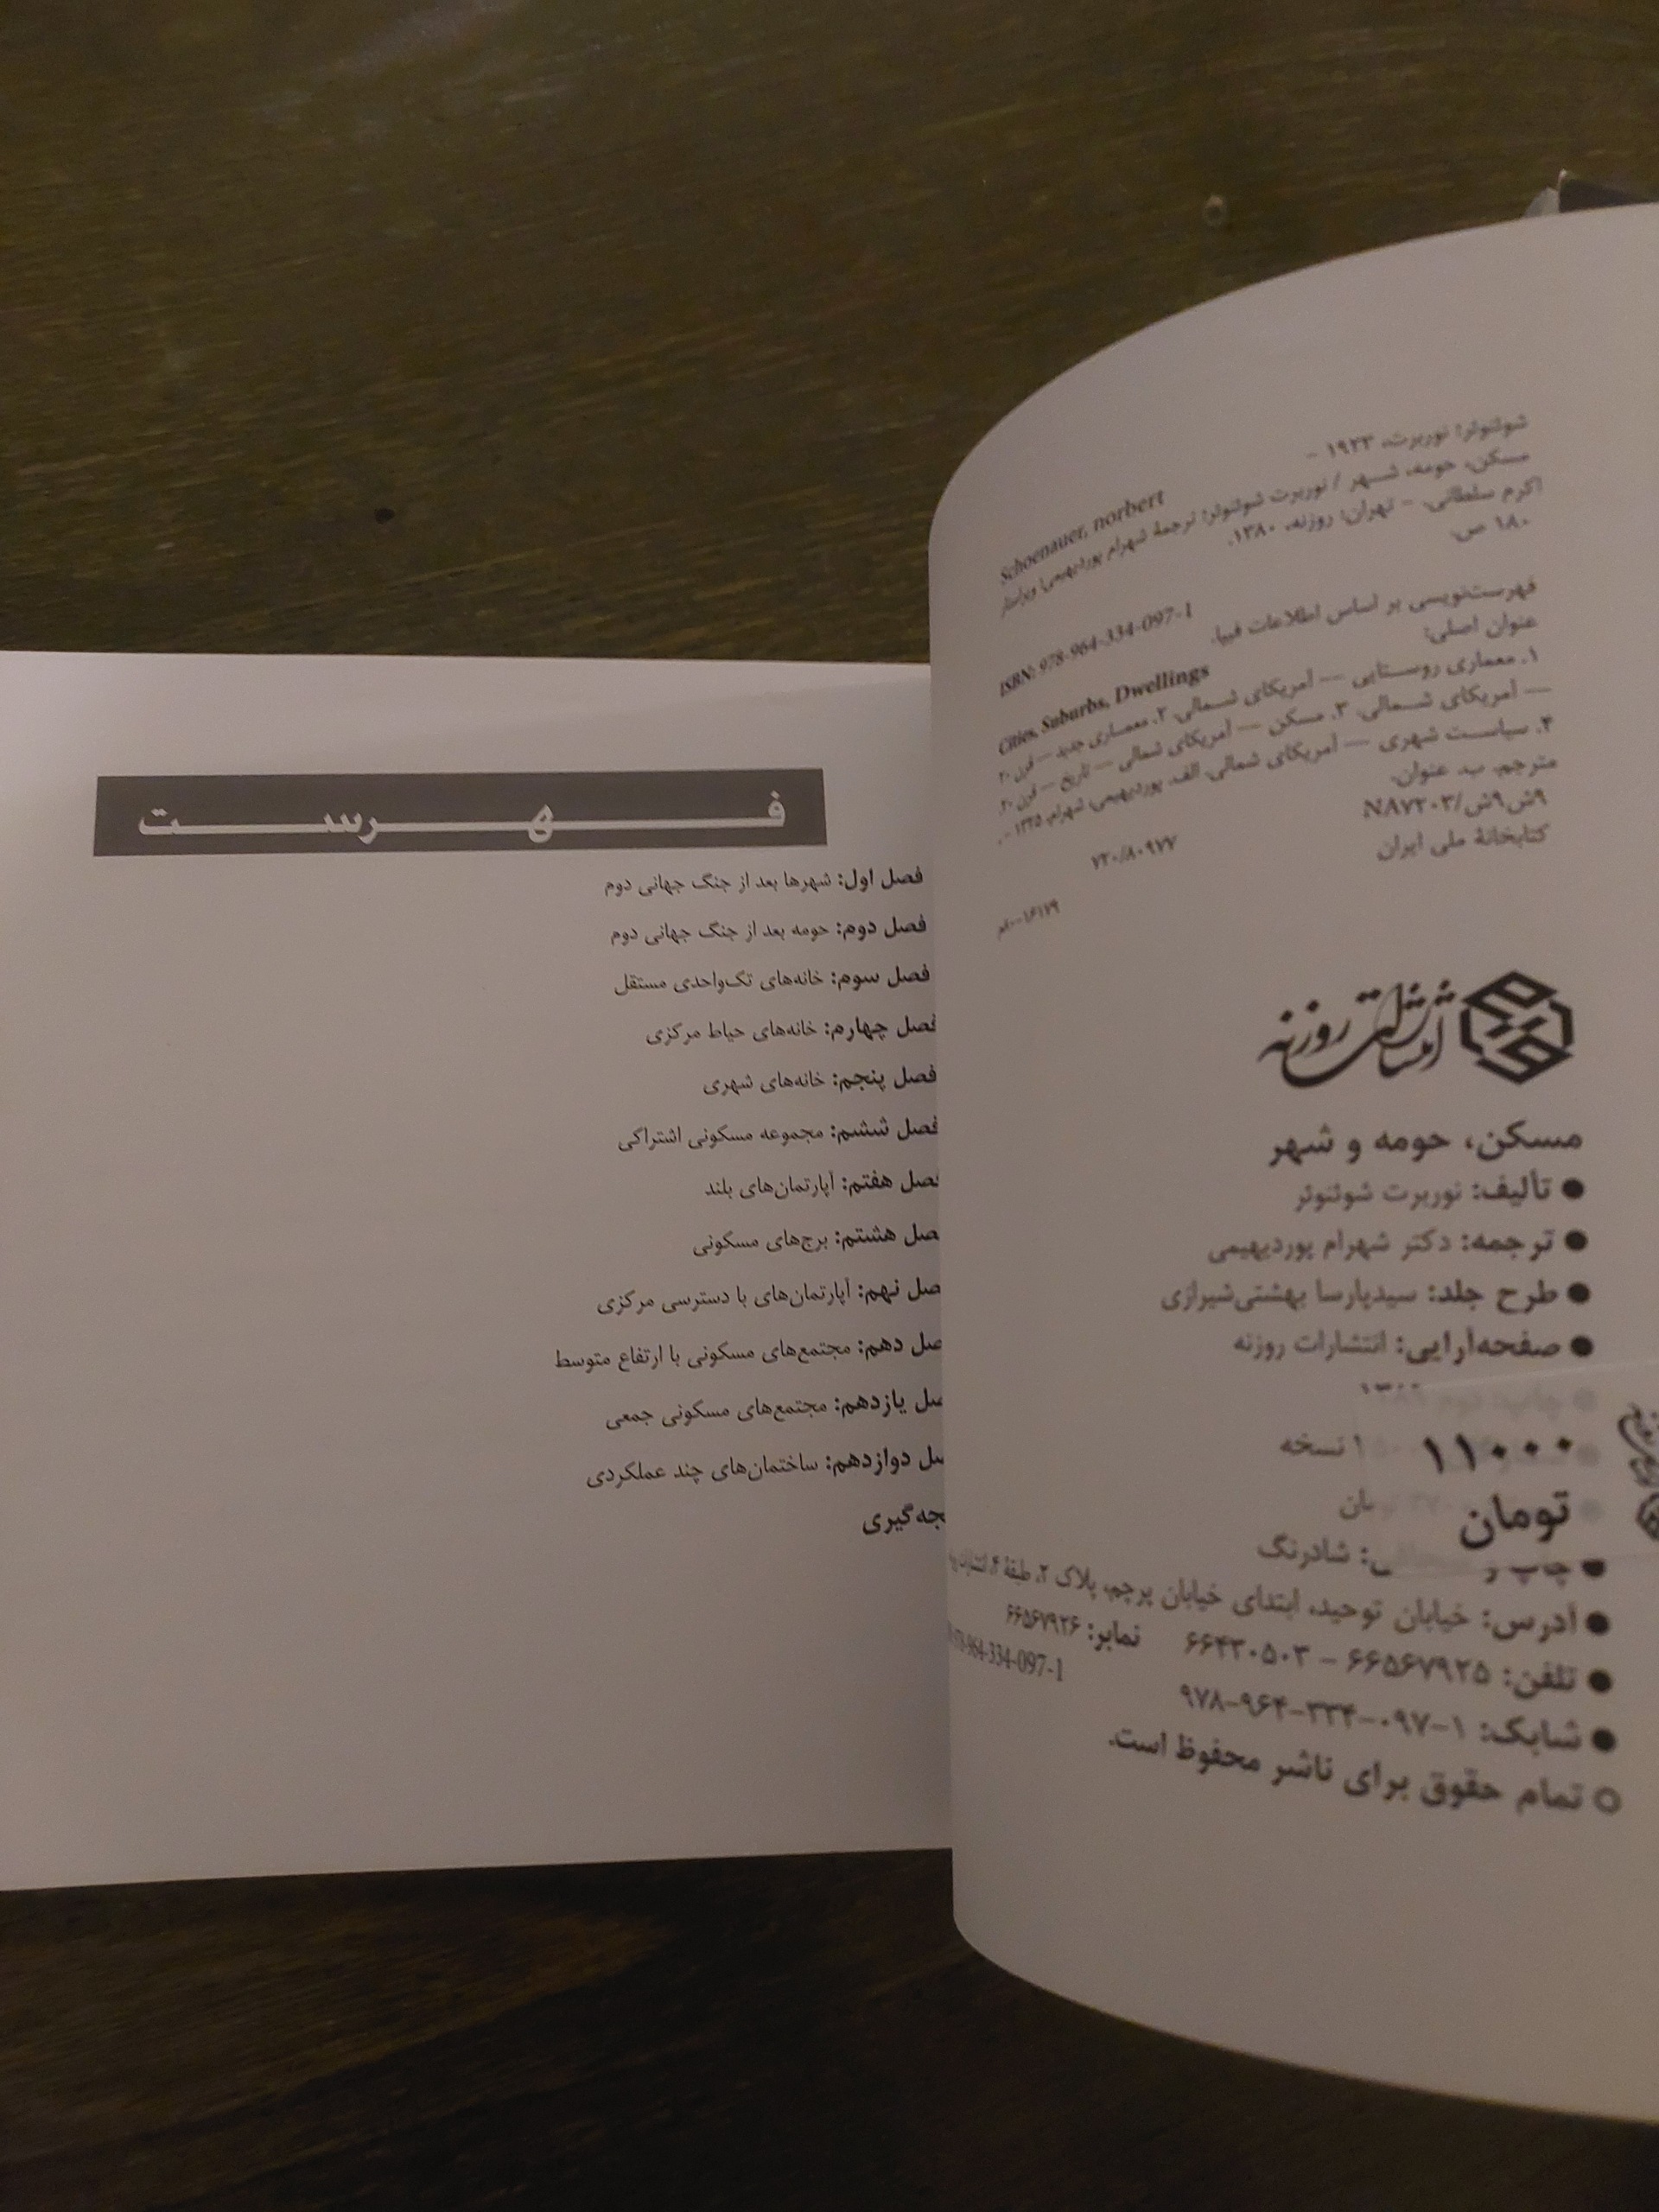 شوئنوئر، نوربرت، ۱۹۲۳ -
Schoenauer, norbert
مسکن، حومه، شهر / نوربرت شوئنوئر؛ ترجمهٔ شهرام پوردیهیمی؛ ویراستار
اکرم سلطانی. - تهران: روزنه، ۱۳۸۰.
۱۸۰ ص.
ISBN: 978-964-334-097-1
فهرست‌نویسی بر اساس اطلاعات فیپا.
عنوان اصلی:
Cities, Suburbs, Dwellings
۱. معماری روستایی — آمریکای شمالی. ۲. معماری جدید — قرن ۲۰
— آمریکای شمالی. ۳. مسکن — آمریکای شمالی — تاریخ — قرن ۲۰.
۴. سیاست شهری — آمریکای شمالی. الف. پوردیهیمی، شهرام، ۱۳۲۵ - .
مترجم. ب. عنوان.
۹ش۹ش/NA۷۲۰۳
۷۲۰/۸۰۹۷۷
کتابخانهٔ ملی ایران
انتشارات روزنه
مسکن، حومه و شهر
● تألیف: نوربرت شوئنوئر
● ترجمه: دکتر شهرام پوردیهیمی
● طرح جلد: سیدپارسا بهشتی‌شیرازی
● صفحه‌آرایی: انتشارات روزنه
چاپ: دوم
۱۱۰۰۰
نسخه
تومان
● چاپ و : شادرنگ
● آدرس: خیابان توحید، ابتدای خیابان پرچم، پلاک ۲، طبقهٔ ۴، انتشارات
● تلفن: ۶۶۵۶۷۹۲۵ - ۶۶۴۳۰۵۰۳ نمابر: ۶۶۵۶۷۹۲۶
978-964-334-097-1
● شابک: ۱-۰۹۷-۳۳۴-۹۶۴-۹۷۸
○ تمام حقوق برای ناشر محفوظ است.
فهرست
فصل اول: شهرها بعد از جنگ جهانی دوم
فصل دوم: حومه بعد از جنگ جهانی دوم
فصل سوم: خانه‌های تک‌واحدی مستقل
فصل چهارم: خانه‌های حیاط مرکزی
فصل پنجم: خانه‌های شهری
فصل ششم: مجموعه مسکونی اشتراکی
فصل هفتم: آپارتمان‌های بلند
صل هشتم: برج‌های مسکونی
صل نهم: آپارتمان‌های با دسترسی مرکزی
صل دهم: مجتمع‌های مسکونی با ارتفاع متوسط
صل یازدهم: مجتمع‌های مسکونی جمعی
صل دوازدهم: ساختمان‌های چند عملکردی
جه‌گیری